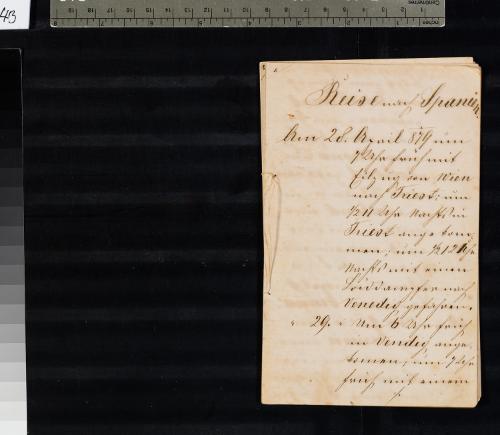 43
Centimetres
inches
Reise nach Spanien.
Am 28. April 879 um
7 Uhr früh mit
Eilzug von Wien
nach Triest; um
½11 Uhr Nachts in
Triest angekom„
men; um ½12 Uhr
Nachts mit einen
Lloiddampfer nach
Venedig gefahren.
" 29. " Um 6 Uhr früh
in Venedig ange„
komen, um 7 Uhr
früh mit einem